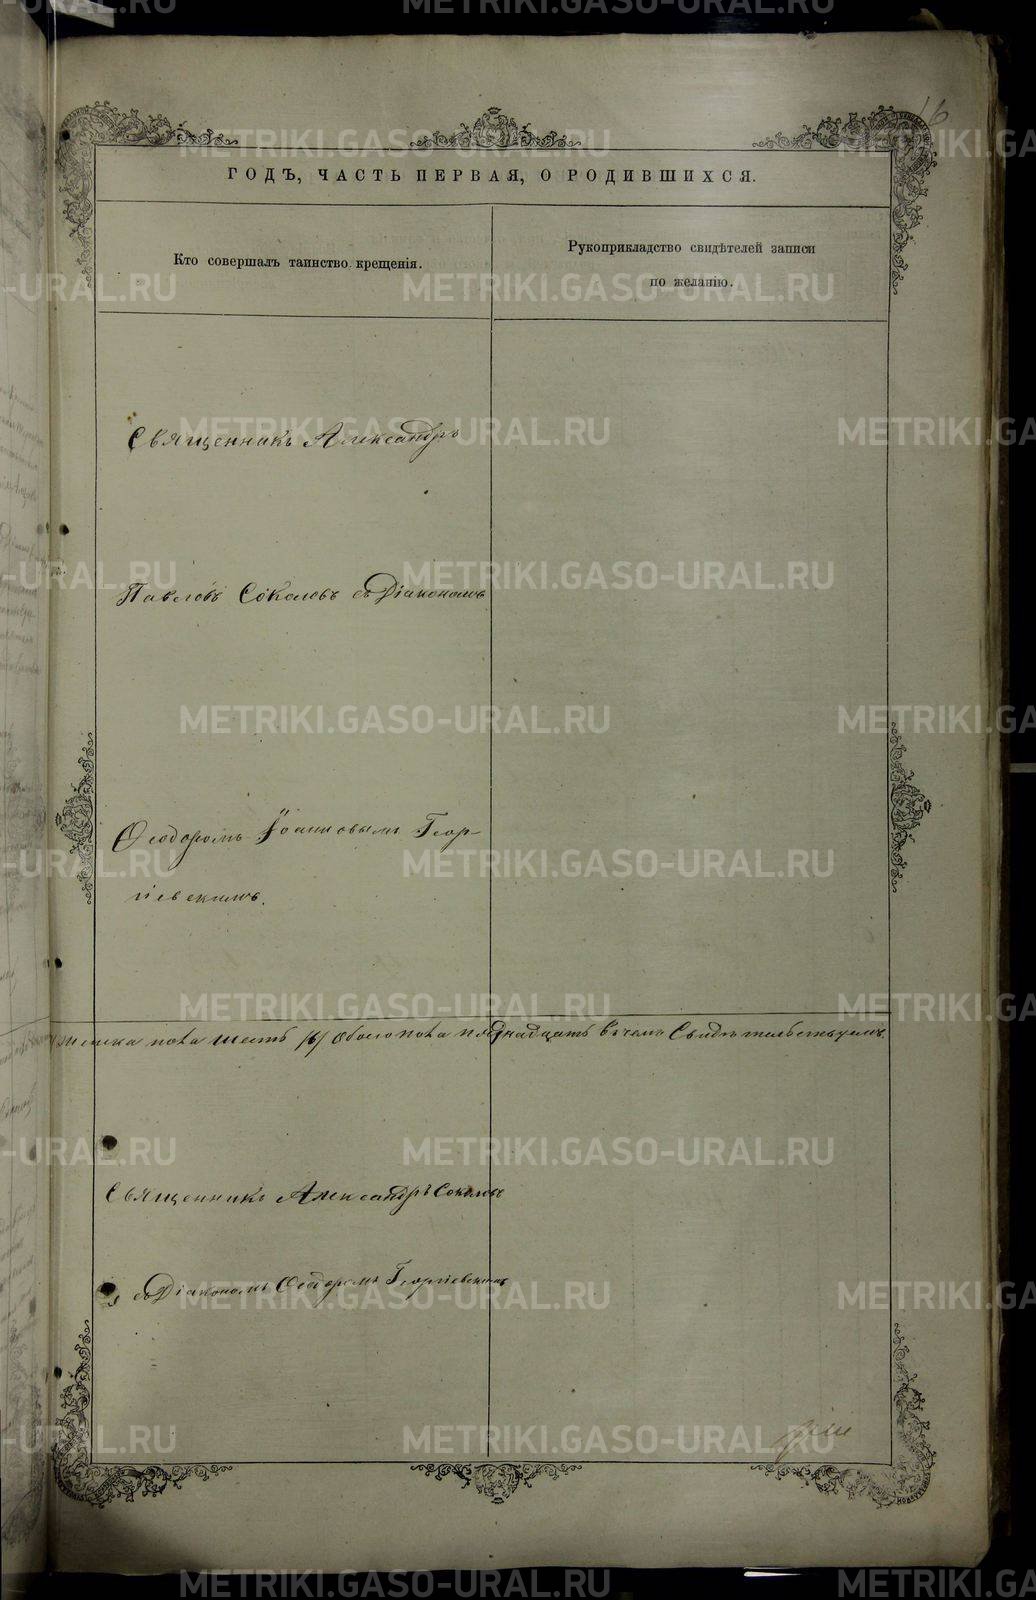 16
ГОДЪ, ЧАСТЬ ПЕРВАЯ, О РОДИВШИХСЯ.
Кто совершалъ таинство крещенія.
Рукоприкладство свидѣтелей записи
по желанію.
Священникъ Александръ
Павловъ Соколовъ съ Діакономъ
Ѳеодоромъ Іоанновымъ Геор-
гіевскимъ.
пола шесть /6/ обоего пола пятнадцать въ чемъ Свидѣтельствуемъ.
Священникъ Александръ Соколовъ
съ Діакономъ Ѳеодоромъ Георгіевскимъ
METRIKI.GASO-URAL.RU